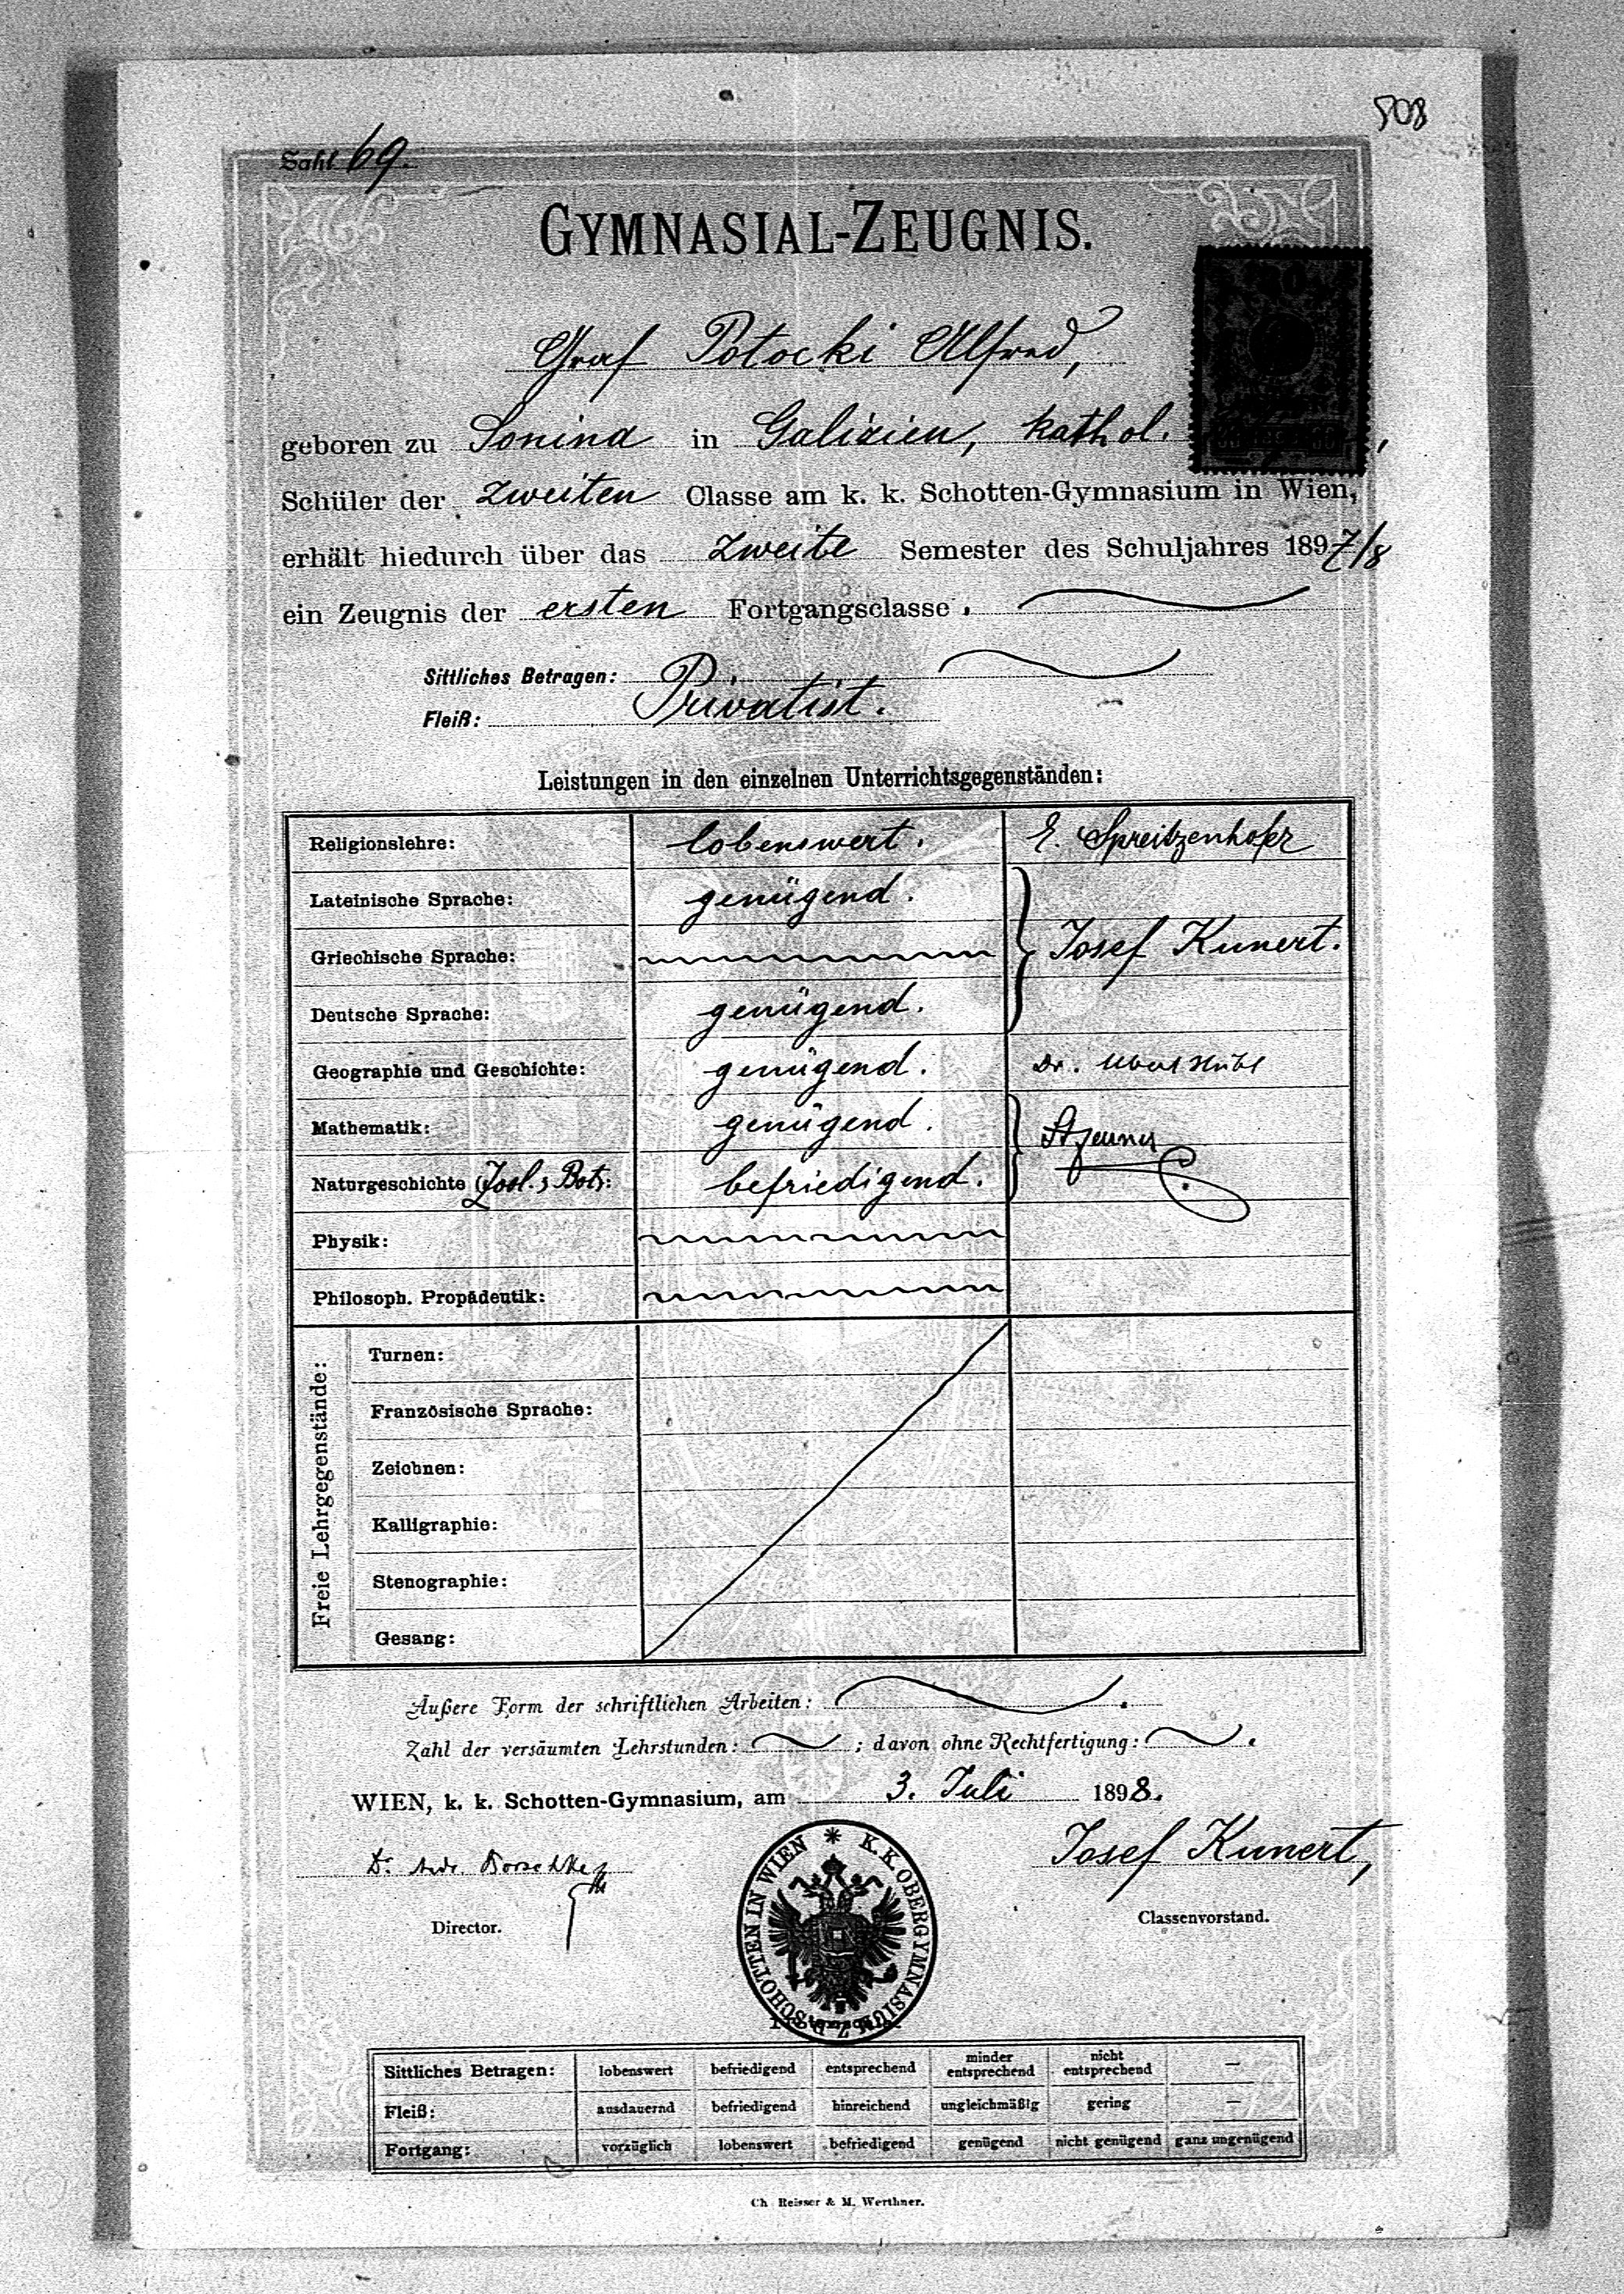 508
Zahl 69.
GYMNASIAL-ZEUGNIS.
Graf Potocki Alfred,
geboren zu Sonina in Galizien, kathol. ,
Schüler der zweiten Classe am k. k. Schotten-Gymnasium in Wien,
erhält hiedurch über das zweite Semester des Schuljahres 1897/8
ein Zeugnis der ersten Fortgangsclasse.
Sittliches Betragen:
Fleiß: Privatist.
Leistungen in den einzelnen Unterrichtsgegenständen:
Religionslehre: lobenswert. E. Spreitzenhofer
Lateinische Sprache: genügend.
Griechische Sprache: Josef Kunert.
Deutsche Sprache: genügend.
Geographie und Geschichte: genügend. Dr. Albert Hübl
Mathematik: genügend.
Naturgeschichte (Zool., Bot.): befriedigend.
Physik:
Philosoph. Propädeutik:
Freie Lehrgegenstände:
Turnen:
Französische Sprache:
Zeichnen:
Kalligraphie:
Stenographie:
Gesang:
Äußere Form der schriftlichen Arbeiten:
Zahl der versäumten Lehrstunden: ; davon ohne Rechtfertigung: .
WIEN, k. k. Schotten-Gymnasium, am 3. Juli 1898.
Dr. Andr. Borschke Josef Kunert,
Director. Classenvorstand.
K. K. OBERGYMNASIUM Z. D. SCHOTTEN IN WIEN
Sittliches Betragen: lobenswert befriedigend entsprechend minder entsprechend nicht entsprechend —
Fleiß: ausdauernd befriedigend hinreichend ungleichmäßig gering —
Fortgang: vorzüglich lobenswert befriedigend genügend nicht genügend ganz ungenügend
Ch. Reisser & M. Werthner.